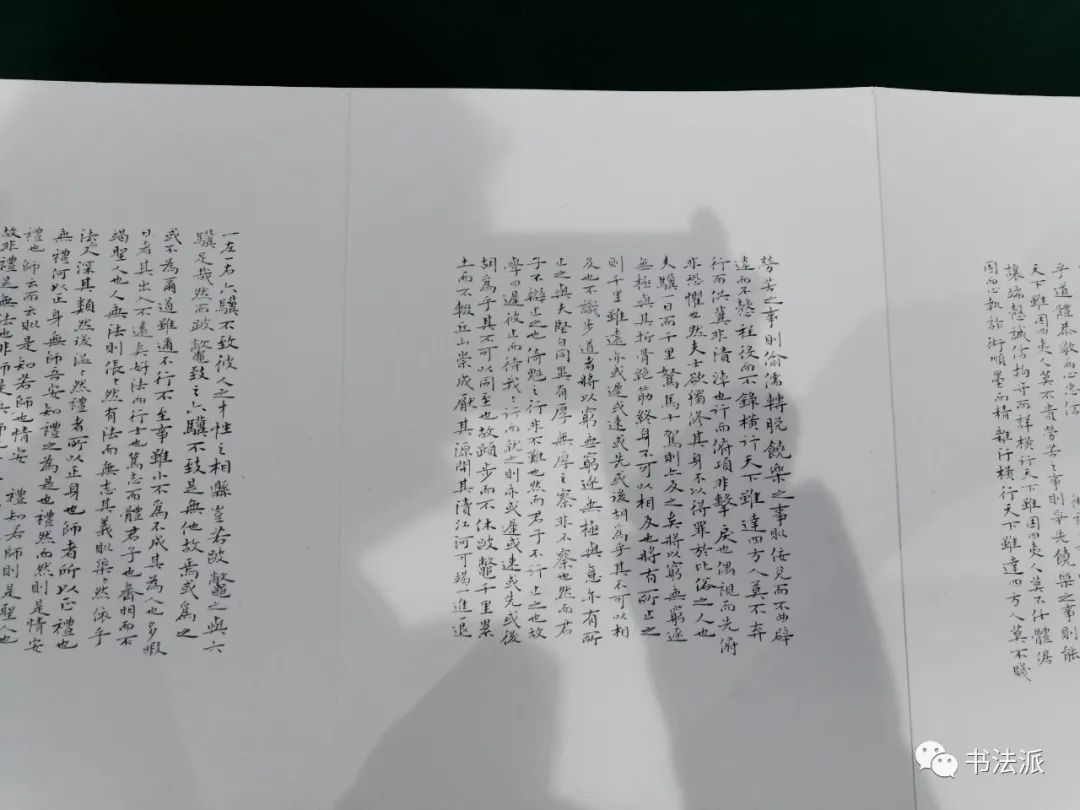 乎道體恭敬而心忠信
天下雖困四夷人莫不貴勞苦之事則爭先饒樂之事則能
讓端愨誠信拘守而詳橫行天下雖困四夷人莫不任體倨
固而心執詐術順墨而精雜行橫行天下雖達四方人莫不賤
勞苦之事則偷儒轉脫饒樂之事則佞兌而不曲辟
違而不愨程役而不錄橫行天下雖達四方人莫不弃
行而供冀非漬淖也行而俯項非擊戾也偶視而先俯
非恐懼也然夫士欲獨修其身不以得罪於比俗之人也
夫驥一日而千里駑馬十駕則亦及之矣將以窮無窮逐
無極與其折骨絶筋終身不可以相及也將有所止之
則千里雖遠亦或遲或速或先或後胡為乎其不可以相
及也不識步道者將以窮無窮逐無極與意亦有所
止之與夫堅白同異有厚無厚之察非不察也然而君
子不辯止之也倚魁之行非不難也然而君子不行止之也故
學曰遲彼止而待我我行而就之則亦或遲或速或先或後
胡為乎其不可以同至也故蹞步而不休跛鼈千里累
土而不輟丘山崇成厭其源開其瀆江河可竭一進一退
一左一右六驥不致彼人之才性之相縣豈若跛鼈之與六
驥足哉然而跛鼈致之六驥不致是無他故焉或為之
或不為爾道雖通不行不至事雖小不為不成其為人也多暇
日者其出入不遠矣好法而行士也篤志而體君子也齊明而不
竭聖人也人無法則倀〻然有法而無志其義則渠〻然依乎
法又深其類然後溫〻然禮者所以正身也師者所以正禮也
無禮何以正身無師吾安知禮之為是也禮然而然則是情安
禮也師云而云則是知若師也情安 禮知若師則是聖人也
故非禮是無法也非師是無師也
书法派